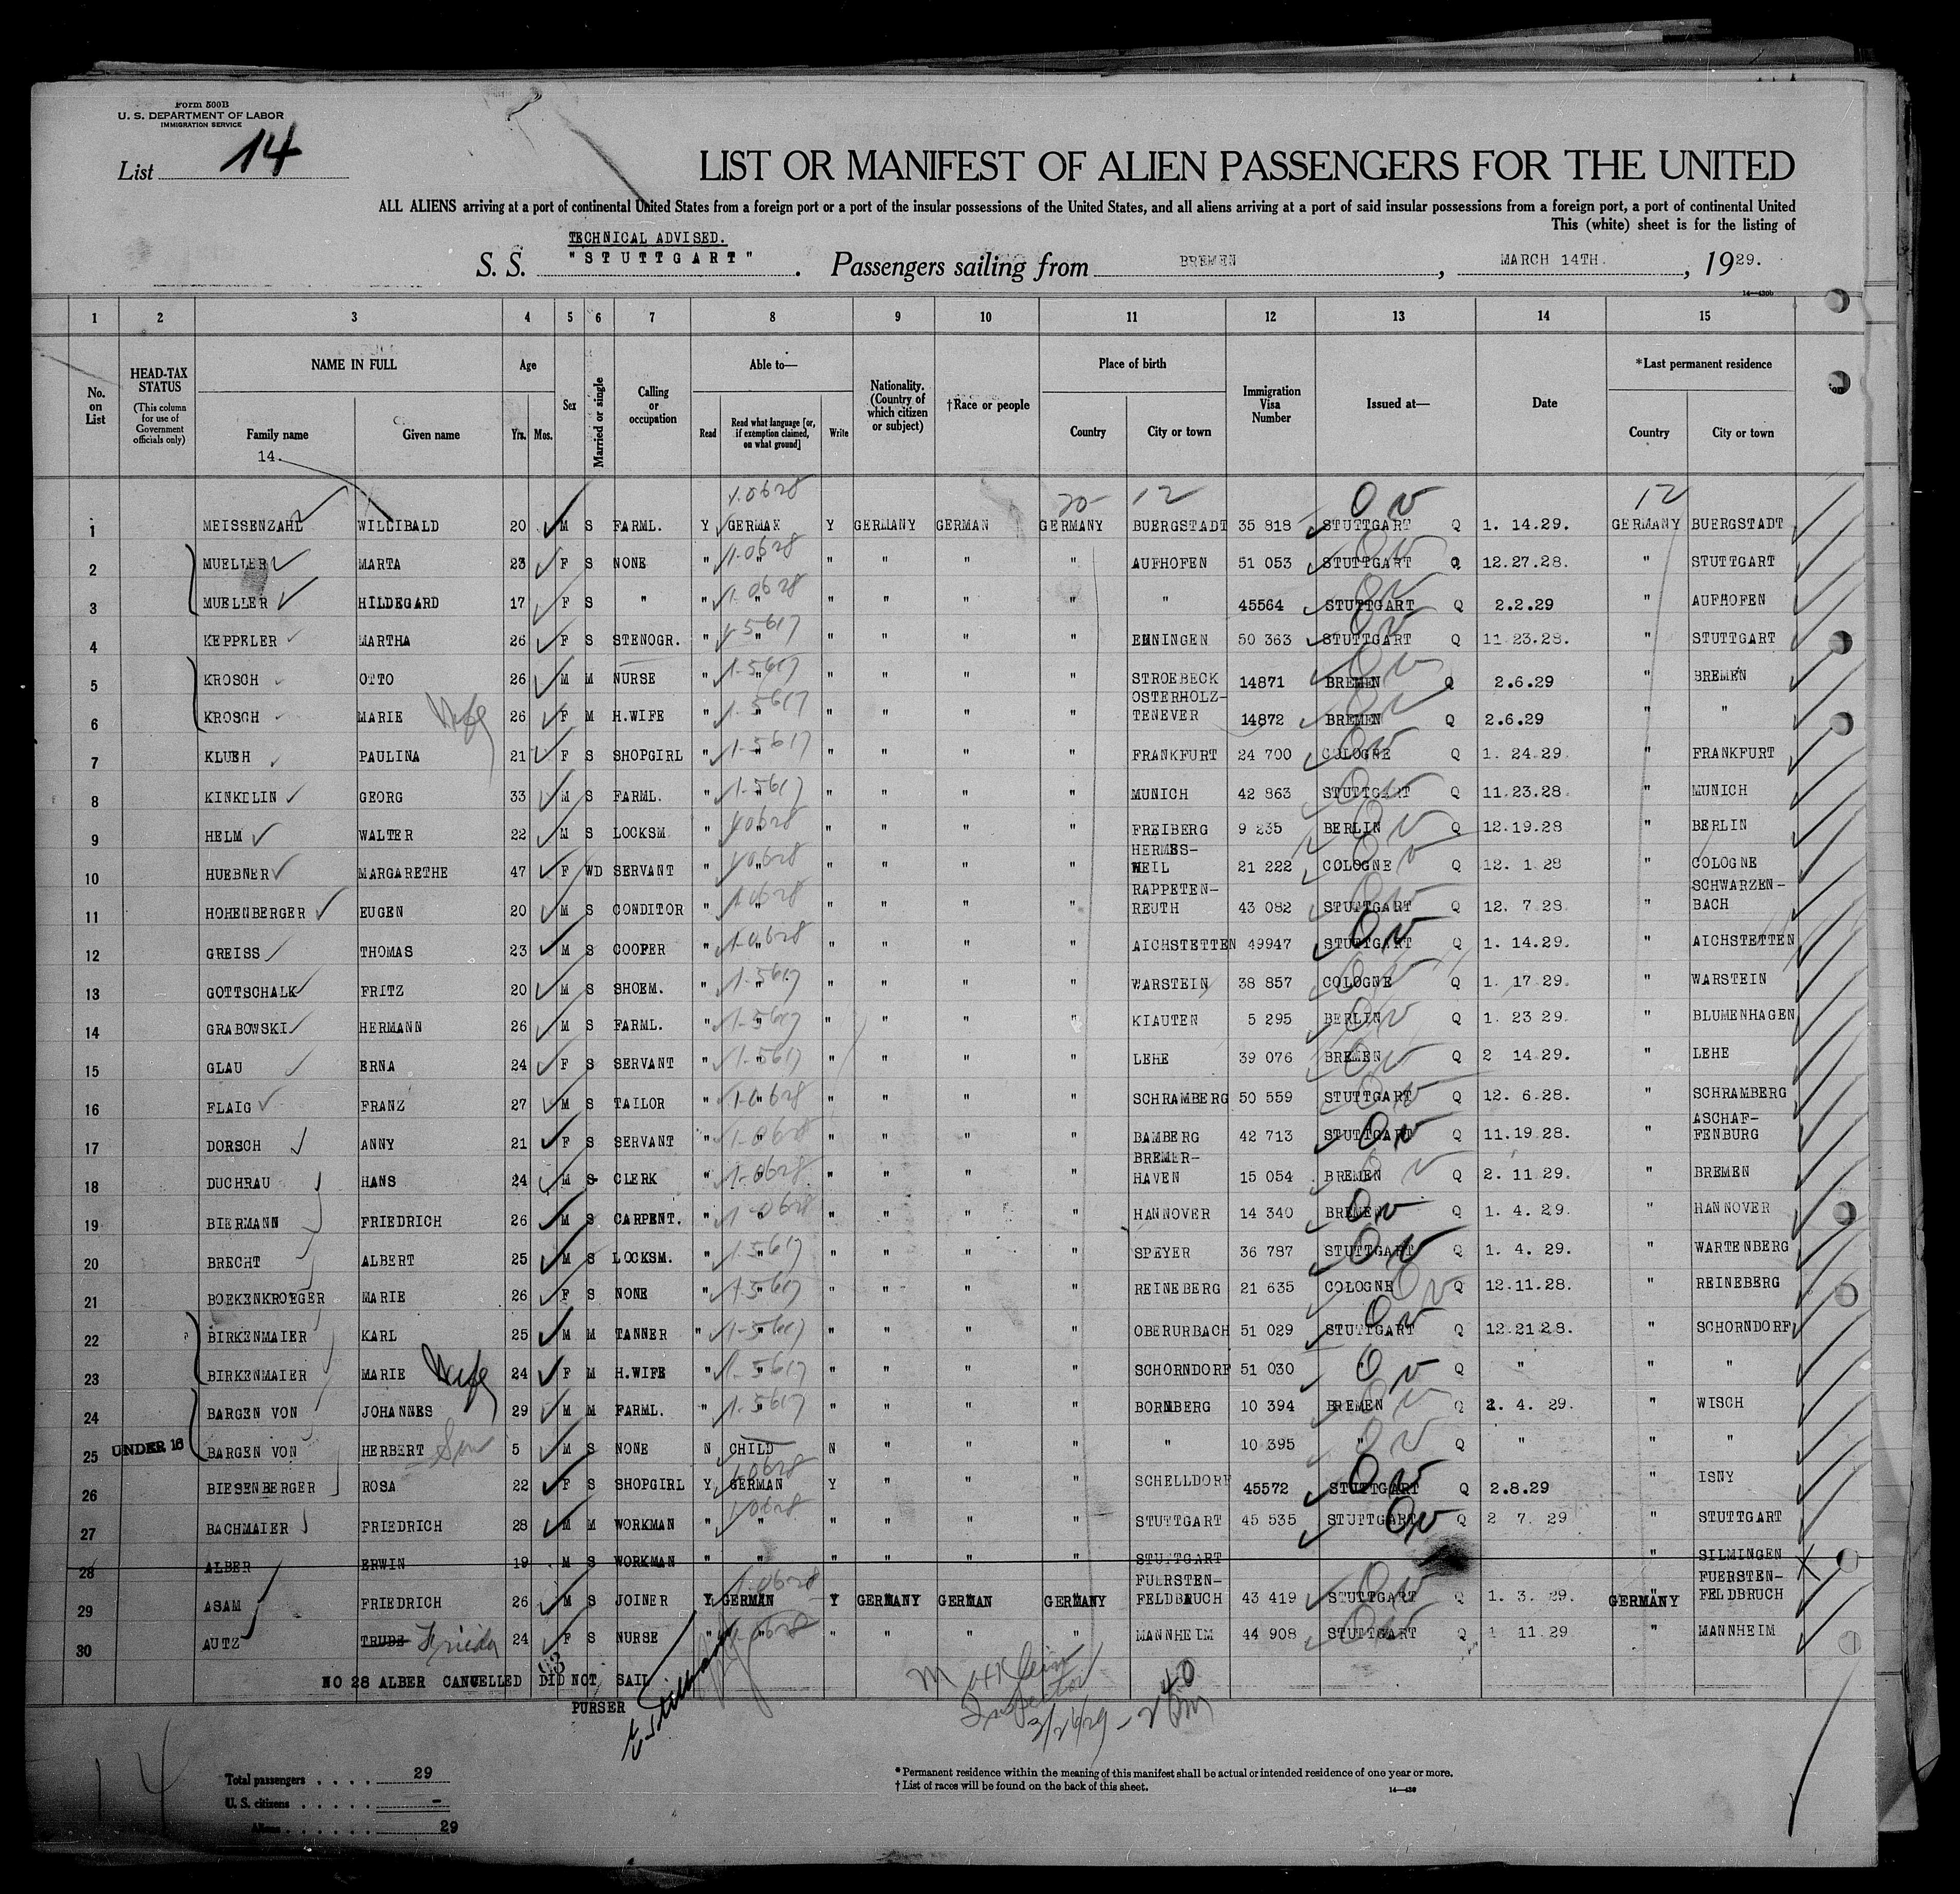 Form 500B
U. S. DEPARTMENT OF LABOR
IMMIGRATION SERVICE
List 14
LIST OR MANIFEST OF ALIEN PASSENGERS FOR THE UNITED
ALL ALIENS arriving at a port of continental United States from a foreign port or a port of the insular possessions of the United States, and all aliens arriving at a port of said insular possessions from a foreign port, a port of continental United
This (white) sheet is for the listing of
TECHNICAL ADVISED.
S. S. "STUTTGART". Passengers sailing from BREMEN, MARCH 14TH., 1929.
14—430b
1 2 3 4 5 6 7 8 9 10 11 12 13 14 15
No. on List
HEAD-TAX STATUS (This column for use of Government officials only)
NAME IN FULL Family name Given name
Age Yrs. Mos.
Sex
Married or single
Calling or occupation
Able to— Read Read what language [or, if exemption claimed, on what ground] Write
Nationality. (Country of which citizen or subject)
†Race or people
Place of birth Country City or town
Immigration Visa Number
Issued at—
Date
*Last permanent residence Country City or town
14.
1-0628 20 12 12
1 MEISSENZAHL WILLIBALD 20 M S FARML. Y GERMAN Y GERMANY GERMAN GERMANY BUERGSTADT 35 818 STUTTGART Q 1. 14.29. GERMANY BUERGSTADT
2 MUELLER MARTA 23 F S NONE " 1-0628 " " " " " AUFHOFEN 51 053 STUTTGART Q 12.27.28. " STUTTGART
3 MUELLER HILDEGARD 17 F S " " 1-0628 " " " " " " 45564 STUTTGART Q 2.2.29 " AUFHOFEN
4 KEPPELER MARTHA 26 F S STENOGR. " 1-5617 " " " " " ENNINGEN 50 363 STUTTGART Q 11 23.28. " STUTTGART
5 KROSCH OTTO 26 M M NURSE " 1-5617 " " " " " STROEBECK 14871 BREMEN Q 2.6.29 " BREMEN
6 KROSCH MARIE Wife 26 F M H.WIFE " 1-5617 " " " " " OSTERHOLZ-TENEVER 14872 BREMEN Q 2.6.29 " "
7 KLUEH PAULINA 21 F S SHOPGIRL " 1-5617 " " " " " FRANKFURT 24 700 COLOGNE Q 1. 24.29. " FRANKFURT
8 KINKELIN GEORG 33 M S FARML. " 1-5617 " " " " " MUNICH 42 863 STUTTGART Q 11.23.28. " MUNICH
9 HELM WALTER 22 M S LOCKSM. " 1-0628 " " " " " FREIBERG 9 235 BERLIN Q 12.19.28 " BERLIN
10 HUEBNER MARGARETHE 47 F WD SERVANT " 1-0628 " " " " " HERMES-WEIL 21 222 COLOGNE Q 12. 1.28 " COLOGNE
11 HOHENBERGER EUGEN 20 M S CONDITOR " 1-0628 " " " " " RAPPETEN-REUTH 43 082 STUTTGART Q 12. 7.28. " SCHWARZEN-BACH
12 GREISS THOMAS 23 M S COOPER " 1-0628 " " " " " AICHSTETTEN 49947 STUTTGART Q 1. 14.29. " AICHSTETTEN
13 GOTTSCHALK FRITZ 20 M S SHOEM. " 1-5617 " " " " " WARSTEIN 38 857 COLOGNE Q 1. 17.29. " WARSTEIN
14 GRABOWSKI HERMANN 26 M S FARML. " 1-5617 " " " " " KIAUTEN 5 295 BERLIN Q 1. 23 29. " BLUMENHAGEN
15 GLAU ERNA 24 F S SERVANT " 1-5617 " " " " " LEHE 39 076 BREMEN Q 2 14.29. " LEHE
16 FLAIG FRANZ 27 M S TAILOR " 1-0628 " " " " " SCHRAMBERG 50 559 STUTTGART Q 12. 6.28. " SCHRAMBERG
17 DORSCH ANNY 21 F S SERVANT " 1-0628 " " " " " BAMBERG 42 713 STUTTGART Q 11.19.28. " ASCHAF-FENBURG
18 DUCHRAU HANS 24 M S CLERK " 1-0628 " " " " " BREMER-HAVEN 15 054 BREMEN Q 2. 11.29. " BREMEN
19 BIERMANN FRIEDRICH 26 M S CARPENT. " 1-0628 " " " " " HANNOVER 14 340 BREMEN Q 1. 4. 29. " HANNOVER
20 BRECHT ALBERT 25 M S LOCKSM. " 1-5617 " " " " " SPEYER 36 787 STUTTGART Q 1. 4. 29. " WARTENBERG
21 BOEKENKROEGER MARIE 26 F S NONE " 1-5617 " " " " " REINEBERG 21 635 COLOGNE Q 12.11.28. " REINEBERG
22 BIRKENMAIER KARL 25 M M TANNER " 1-5617 " " " " " OBERURBACH 51 029 STUTTGART Q 12.21 28. " SCHORNDORF
23 BIRKENMAIER MARIE Wife 24 F M H.WIFE " 1-5617 " " " " " SCHORNDORF 51 030 " Q " " "
24 BARGEN VON JOHANNES 29 M M FARML. " 1-5617 " " " " " BORNBERG 10 394 BREMEN Q 2. 4. 29. " WISCH
25 UNDER 16 BARGEN VON HERBERT Son 5 M S NONE N CHILD N " " " " 10 395 " Q " " "
26 BIESENBERGER ROSA 22 F S SHOPGIRL Y 1-0628 GERMAN Y " " " SCHELLDORF 45572 STUTTGART Q 2.8.29 " ISNY
27 BACHMAIER FRIEDRICH 28 M M WORKMAN " 1-0628 " " " " " STUTTGART 45 535 STUTTGART Q 2 7. 29 " STUTTGART
28 ALBER ERWIN 19 M S WORKMAN " " " " " " STUTTGART " SILMINGEN
29 ASAM FRIEDRICH 26 M S JOINER Y 1-0628 GERMAN Y GERMANY GERMAN GERMANY FUERSTEN-FELDBRUCH 43 419 STUTTGART Q 1. 3. 29. GERMANY FUERSTEN-FELDBRUCH
30 AUTZ TRUDE Frieda 24 F S NURSE " 1-0628 " " " " " MANNHEIM 44 908 STUTTGART Q 1 11.29 " MANNHEIM
NO 28 ALBER CANCELLED DID NOT SAIL
PURSER
Inspector
3/26/29
Total passengers . . . . 29
U. S. citizens . . . . . -
Aliens . . . . . . 29
*Permanent residence within the meaning of this manifest shall be actual or intended residence of one year or more.
†List of races will be found on the back of this sheet.
14—430
14